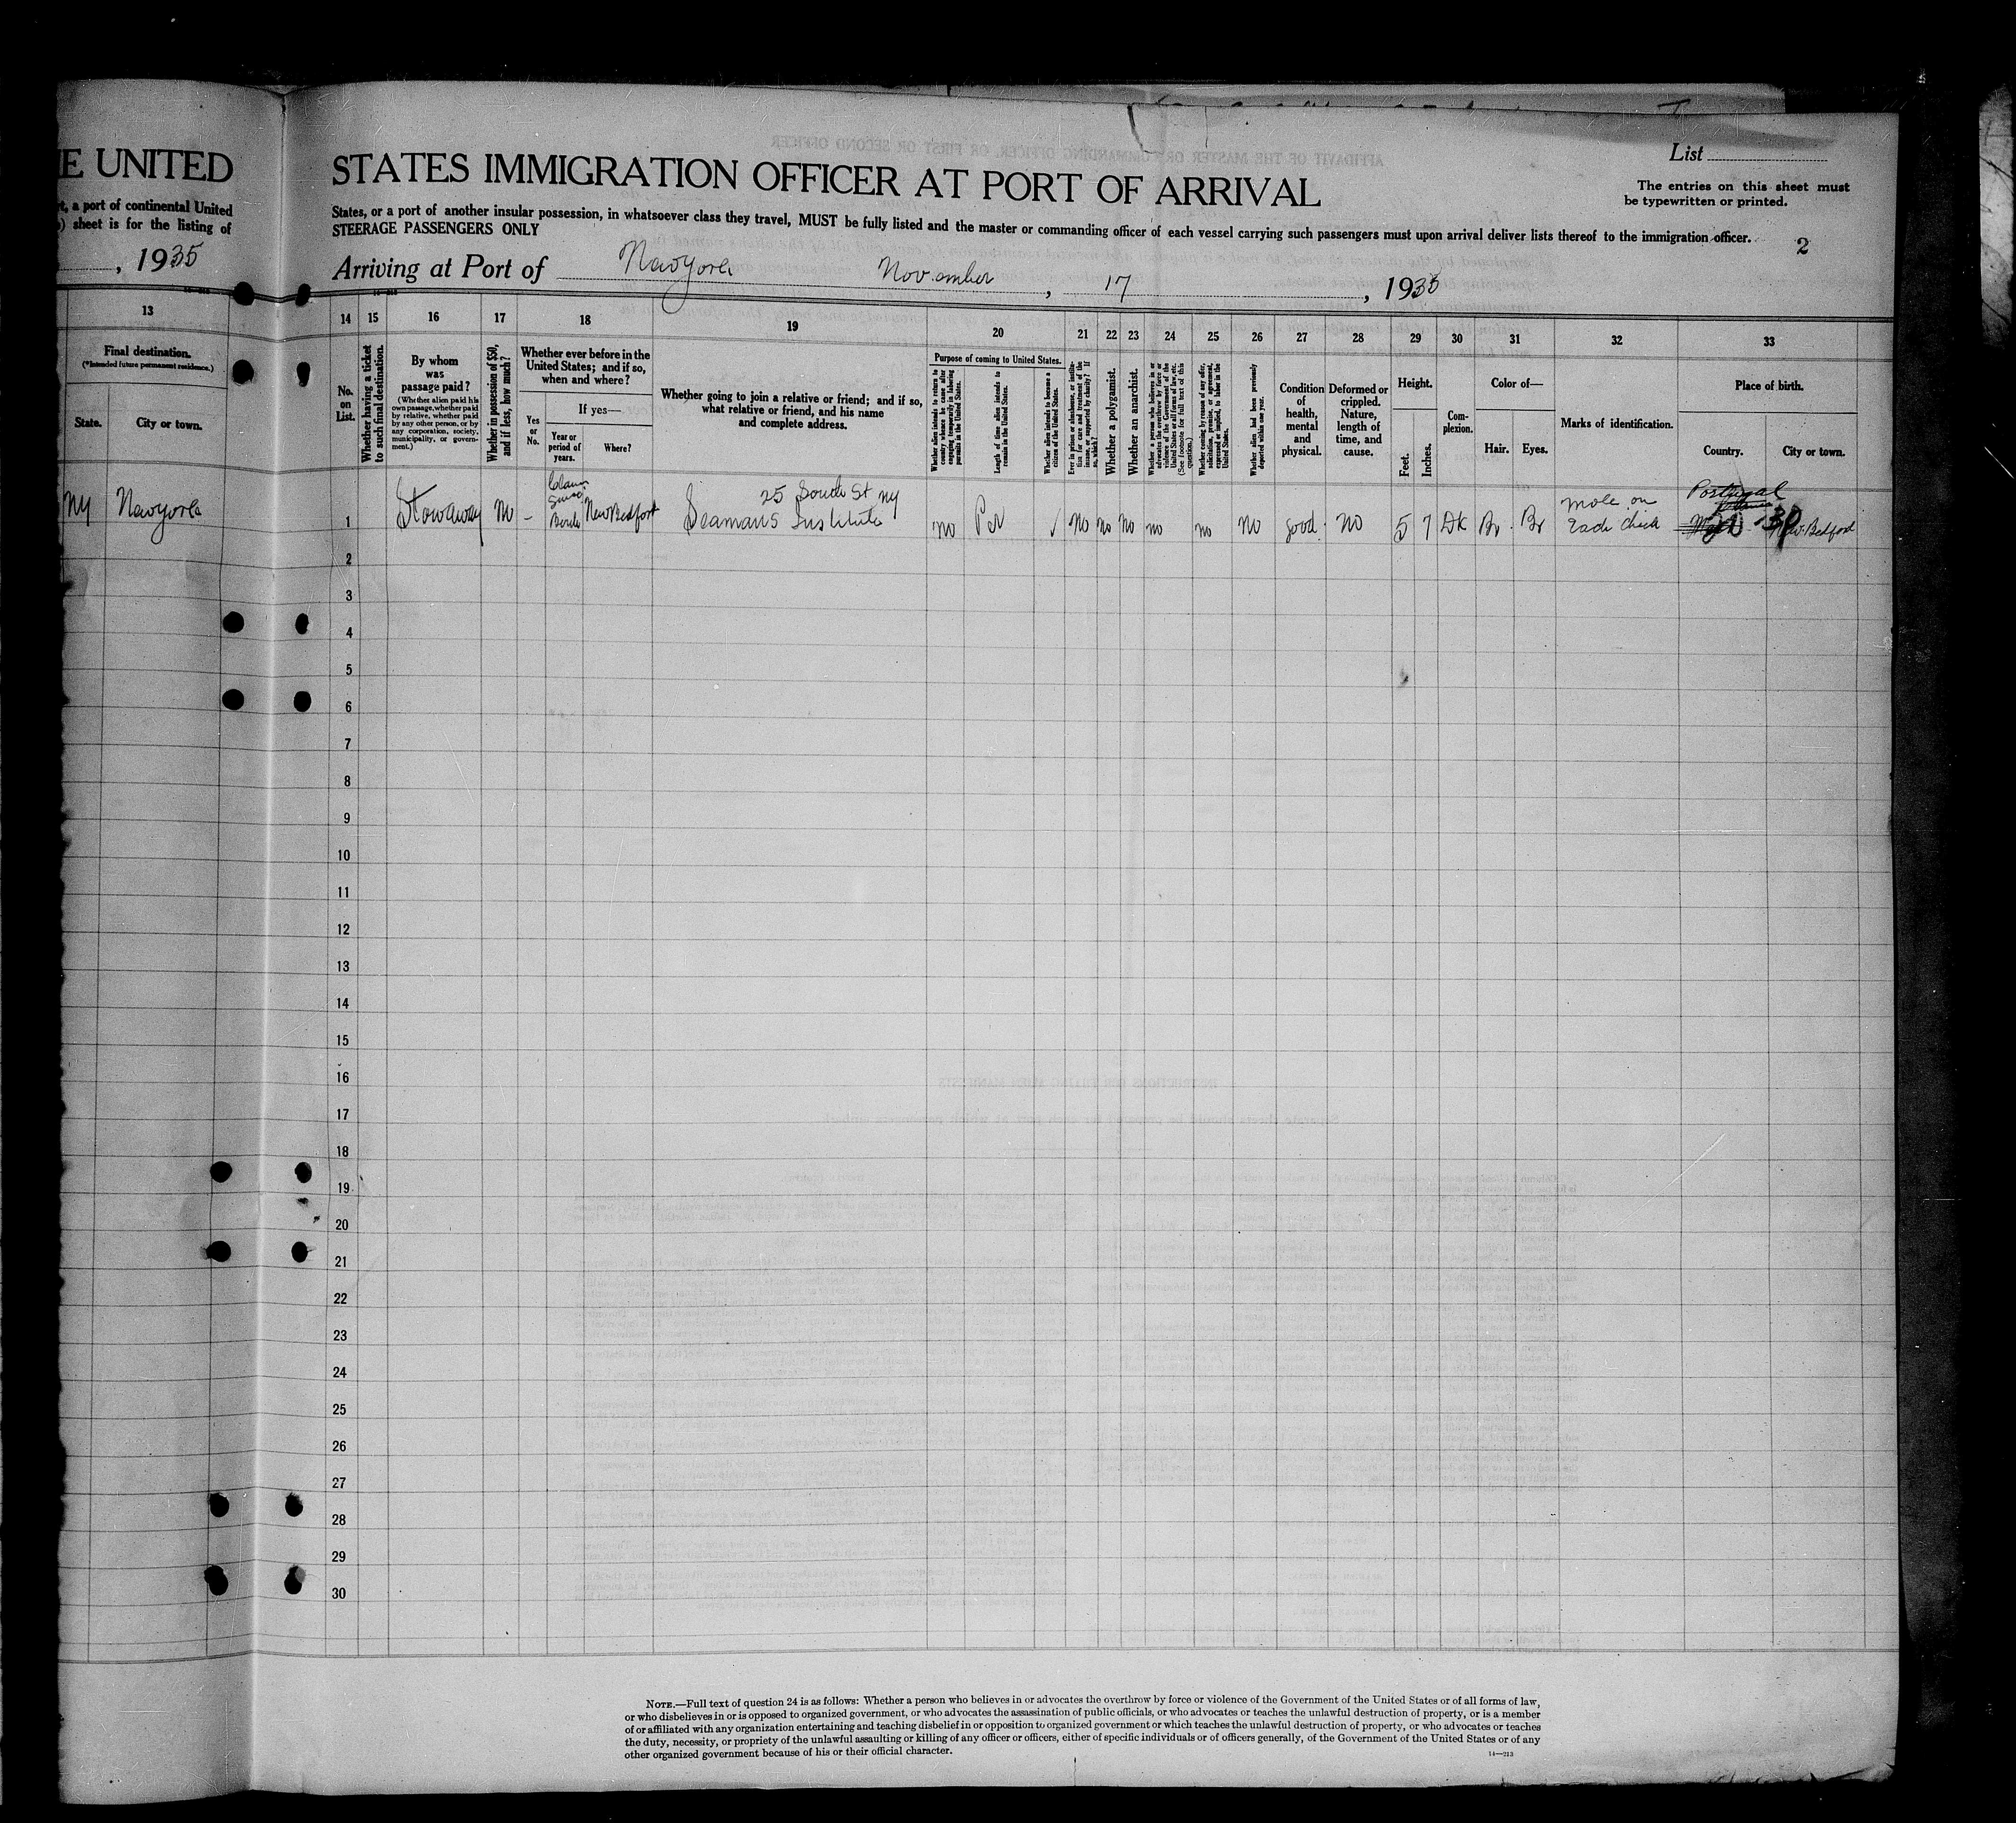 E UNITED
t, a port of continental United
) sheet is for the listing of
, 1935
13
Final destination.
(*Intended future permanent residence.)
State.
City or town.
NY
New York
STATES IMMIGRATION OFFICER AT PORT OF ARRIVAL
List
The entries on this sheet must
be typewritten or printed.
States, or a port of another insular possession, in whatsoever class they travel, MUST be fully listed and the master or commanding officer of each vessel carrying such passengers must upon arrival deliver lists thereof to the immigration officer.
STEERAGE PASSENGERS ONLY
2
Arriving at Port of New York November, 17, 1935
14 15 16 17 18 19 20 21 22 23 24 25 26 27 28 29 30 31 32 33
No.
on
List.
Whether having a ticket
to such final destination.
By whom
was
passage paid?
(Whether alien paid his
own passage, whether paid
by relative, whether paid
by any other person, or by
any corporation, society,
municipality, or govern-
ment.)
Whether in possession of $50,
and if less, how much?
Whether ever before in the
United States; and if so,
when and where?
Yes
or
No.
If yes—
Year or
period of
years.
Where?
Whether going to join a relative or friend; and if so,
what relative or friend, and his name
and complete address.
Purpose of coming to United States.
Whether alien intends to return to
country whence he came after
engaging temporarily in laboring
pursuits in the United States.
Length of time alien intends to
remain in the United States.
Whether alien intends to become a
citizen of the United States.
Ever in prison or almshouse, or institu-
tion for care and treatment of the
insane, or supported by charity? If
so, which?
Whether a polygamist.
Whether an anarchist.
Whether a person who believes in or
advocates the overthrow by force or
violence of the Government of the
United States or all forms of law, etc.
(See footnote for full text of this
question.)
Whether coming by reason of any offer,
solicitation, promise, or agreement,
expressed or implied, to labor in the
United States.
Whether alien had been previously
deported within one year.
Condition
of
health,
mental
and
physical.
Deformed or
crippled.
Nature,
length of
time, and
cause.
Height.
Feet.
Inches.
Com-
plexion.
Color of—
Hair.
Eyes.
Marks of identification.
Place of birth.
Country.
City or town.
25 South St NY
mole on
Portugal
1 Stowaway No - New Bedfort Seamans Institute no Per ✓ no no no no no no good no 5 7 DK Br Br Each Cheek New Bedford
2
3
4
5
6
7
8
9
10
11
12
13
14
15
16
17
18
19
20
21
22
23
24
25
26
27
28
29
30
NOTE.—Full text of question 24 is as follows: Whether a person who believes in or advocates the overthrow by force or violence of the Government of the United States or of all forms of law,
or who disbelieves in or is opposed to organized government, or who advocates the assassination of public officials, or who advocates or teaches the unlawful destruction of property, or is a member
of or affiliated with any organization entertaining and teaching disbelief in or opposition to organized government or which teaches the unlawful destruction of property, or who advocates or teaches
the duty, necessity, or propriety of the unlawful assaulting or killing of any officer or officers, either of specific individuals or of officers generally, of the Government of the United States or of any
other organized government because of his or their official character.
14—213